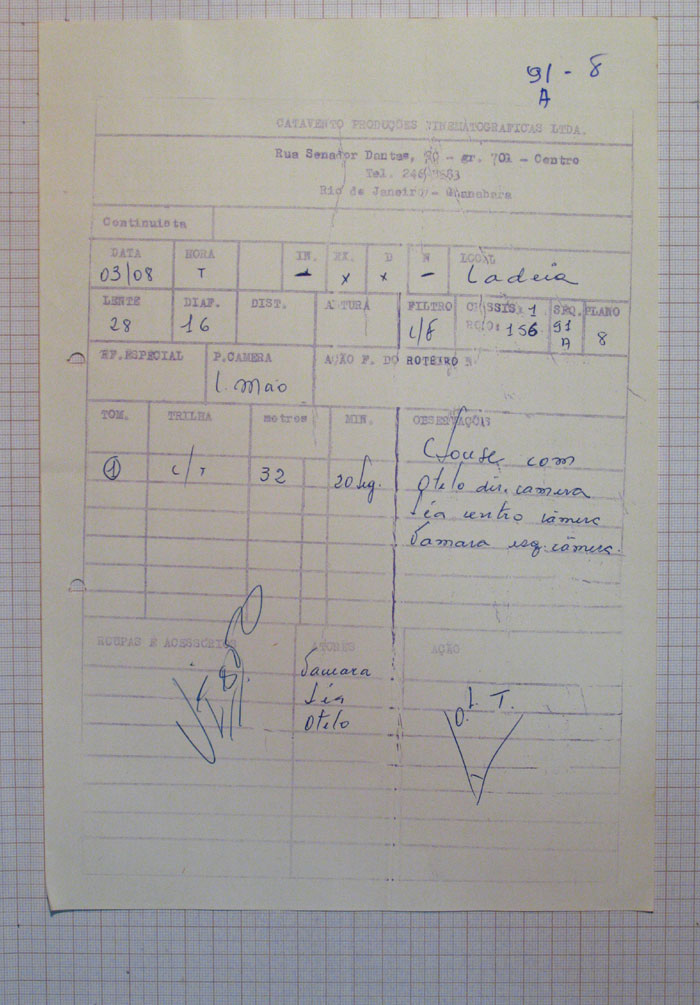 91 - 8
A
CATAVENTO PRODUÇÕES CINEMATOGRAFICAS LTDA.
Rua Senador Dantas, 20 - gr. 701 - Centro
Tel. 246
Rio de Janeiro - Guanabara
Continuista
DATA HORA IN. EX. D N LOCAL
03/08 T - x x - Cadeia
LENTE DIAF. DIST. ALTURA FILTRO CHASSIS: 1 SEQ. PLANO
28 16 c/F ROLO: 156 91 A 8
EF. ESPECIAL P. CAMERA AÇÃO F. DO ROTEIRO
C. Mão
TOM. TRILHA metros MIN. OBSERVAÇÕES
1 c/T 32 20 seg. Close com
Otelo dir. camera
Léa centro câmera
Damara esq. câmera.
ROUPAS E ACESSÓRIOS ATORES AÇÃO
Damara
Léa
Otelo
O. L. T.